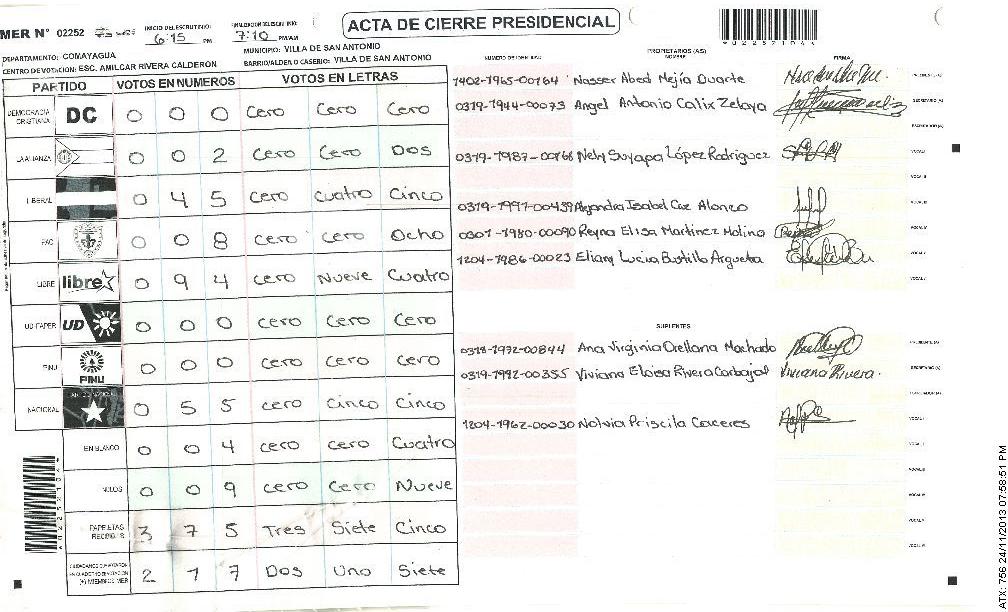 ACTA DE CIERRE PRESIDENCIAL
MER N° 02252
INICIO DEL ESCRUTINIO: 6:15 PM
FINALIZACION DEL ESCRUTINIO: 7:10 PM/AM
DEPARTAMENTO: COMAYAGUA
MUNICIPIO: VILLA DE SAN ANTONIO
CENTRO DE VOTACION: ESC. AMILCAR RIVERA CALDERON
BARRIO/ALDEA O CASERIO: VILLA DE SAN ANTONIO
PARTIDO VOTOS EN NUMEROS VOTOS EN LETRAS
DEMOCRACIA CRISTIANA DC 0 0 0 Cero Cero Cero
LA ALIANZA 0 0 2 Cero Cero Dos
LIBERAL 0 4 5 Cero Cuatro Cinco
PAC 0 0 8 Cero Cero Ocho
LIBRE libre 0 9 4 Cero Nueve Cuatro
UD-FAPER UD 0 0 0 Cero Cero Cero
PINU PINU 0 0 0 Cero Cero Cero
NACIONAL 0 5 5 Cero Cinco Cinco
EN BLANCO 0 0 4 Cero Cero Cuatro
NULOS 0 0 9 Cero Cero Nueve
PAPELETAS RECIBIDAS 3 7 5 Tres Siete Cinco
(+) MIEMBROS MER 2 1 7 Dos Uno Siete
PROPIETARIOS (AS)
NUMERO DE IDENTIDAD NOMBRE FIRMA
1402-1965-00164 Nasser Abed Mejía Duarte PRESIDENTE (A)
0319-1944-00073 Angel Antonio Calix Zelaya SECRETARIO (A)
ESCRUTADOR (A)
0319-1987-00768 Nely Suyapa López Rodriguez VOCAL I
VOCAL II
0319-1991-00439 Alejandra Isabel Alonzo VOCAL III
0301-1980-00090 Reyna Elisa Martinez Molina VOCAL IV
1204-1986-00023 Eliany Lucia Bustillo Argueta VOCAL V
SUPLENTES
0318-1972-00844 Ana Virginia Orellana Machado PRESIDENTE (A)
0319-1992-00355 Viviana Eloisa Rivera Carbajal Viviana Rivera. SECRETARIO (A)
ESCRUTADOR (A)
1204-1962-00030 Nolvia Priscila Caceres VOCAL I
VOCAL II
VOCAL III
VOCAL IV
VOCAL V
ATX: 756 24/11/2013 07:58:51 PM